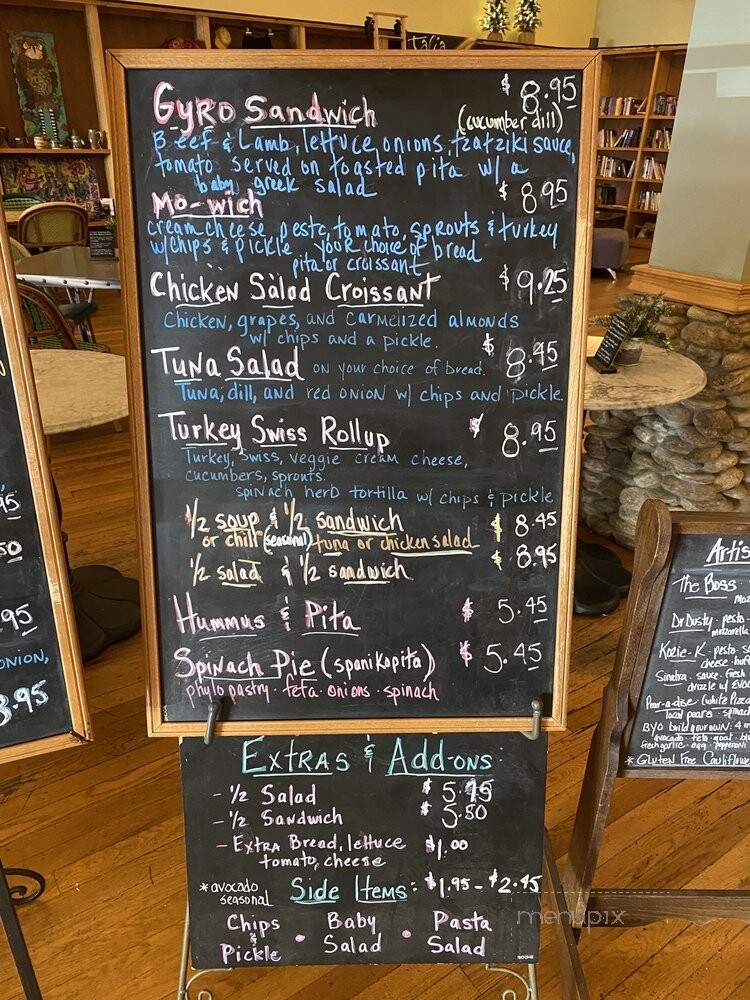 Gyro Sandwich $8.95
(cucumber dill)
Beef & Lamb, lettuce onions, tzatziki sauce,
tomato served on toasted pita w/ a
baby greek salad
Mo-wich $8.95
cream cheese, pesto, tomato, sprouts & turkey
w/chips & pickle your choice of bread
pita or croissant
Chicken Salad Croissant $9.25
Chicken, grapes, and carmelized almonds
w/ chips and a pickle.
Tuna Salad on your choice of bread. $8.45
Tuna, dill, and red onion w/ chips and pickle.
Turkey Swiss Rollup $8.95
Turkey, Swiss, veggie cream cheese,
cucumbers, sprouts.
spinach herb tortilla w/ chips & pickle
1/2 soup & 1/2 sandwich $8.45
or chili (seasonal) tuna or chicken salad
1/2 salad & 1/2 sandwich $8.95
Hummus & Pita $5.45
Spinach Pie (spanikopita) $5.45
phylo pastry · feta · onions · spinach
Extras & Add-ons
- 1/2 Salad
- 1/2 Sandwich $5.50
- Extra Bread, lettuce $1.00
tomato, cheese
*avocado
seasonal
Side Items: $1.95 - $2.45
Chips & Pickle · Baby Salad · Pasta Salad
menupix
45
50
.95
onion,
8.95
Artis
The Boss
Dr Dusty · pesto
mozzarella
Kozie-K · pesto
Sinatra · sauce · fresh
drizzle w/
Pear-a-dise (white
local pears · spinach
BYO build your own: 4
avocado · feta · goat
fresh garlic · egg · pepperoni
*Gluten Free Cauliflower